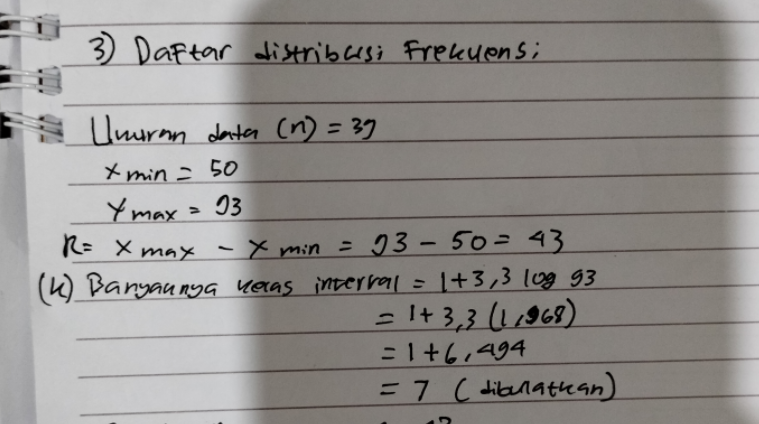 3) Daftar distribusi Frekuensi
Ukuran data (n) = 39
x min = 50
x max = 93
R = x max - x min = 93 - 50 = 43
(k) Banyaknya kelas interval = 1+3,3 log 93
= 1+ 3,3 (1,968)
= 1+6,494
= 7 (dibulatkan)